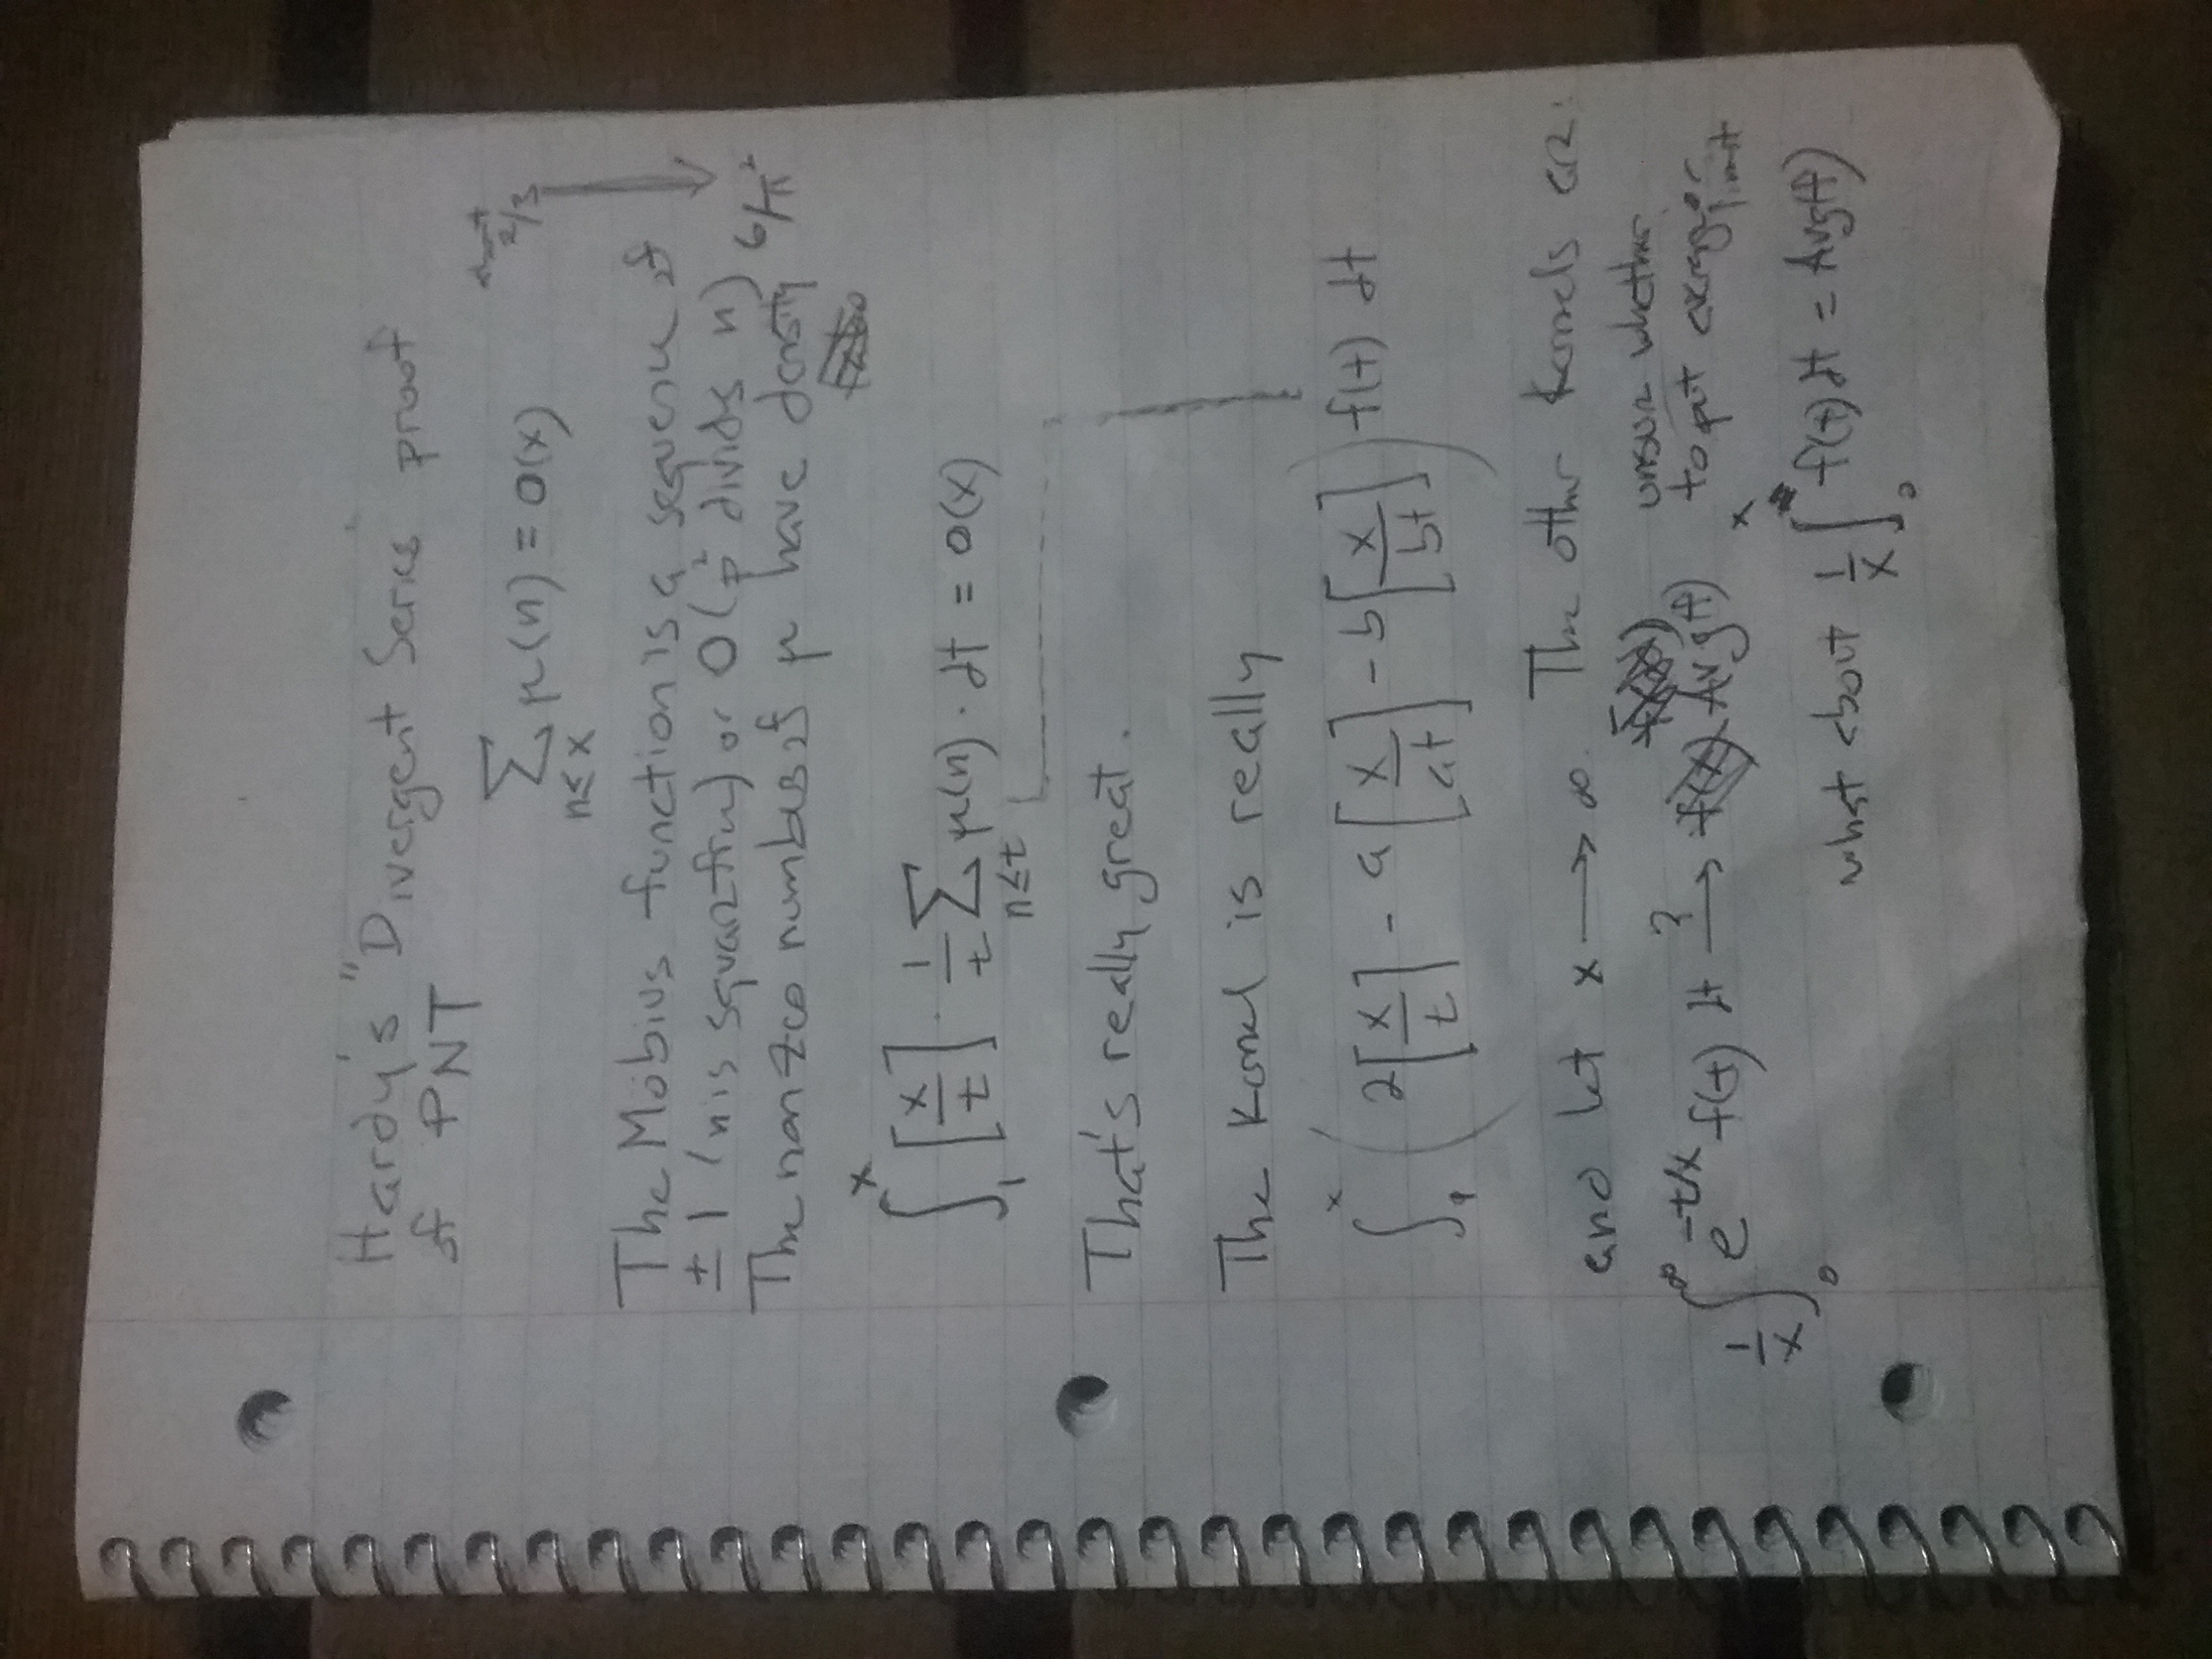 Hardy's "Divergent Series" proof
of PNT
∑ μ(n) = o(x)
n≤x
2/3
The Möbius function is a sequence of
±1 (n is squarefree) or 0 (p² divides n)
The nonzero numbers of μ have density 6/π²
∫₁ˣ [x/t] · 1/t ∑ μ(n) · dt = o(x)
n≤t
That's really great.
The Kernel is really
∫ˣ ( 2[x/t] - a[x/at] - b[x/bt] ) f(t) dt
and let x → ∞. The other Kernels are:
1/x ∫₀^∞ e^(-t/x) f(t) dt →? Avg(f)
unsure whether
to put average or
limit
what about 1/x ∫₀ˣ f(t) dt = Avg(f)